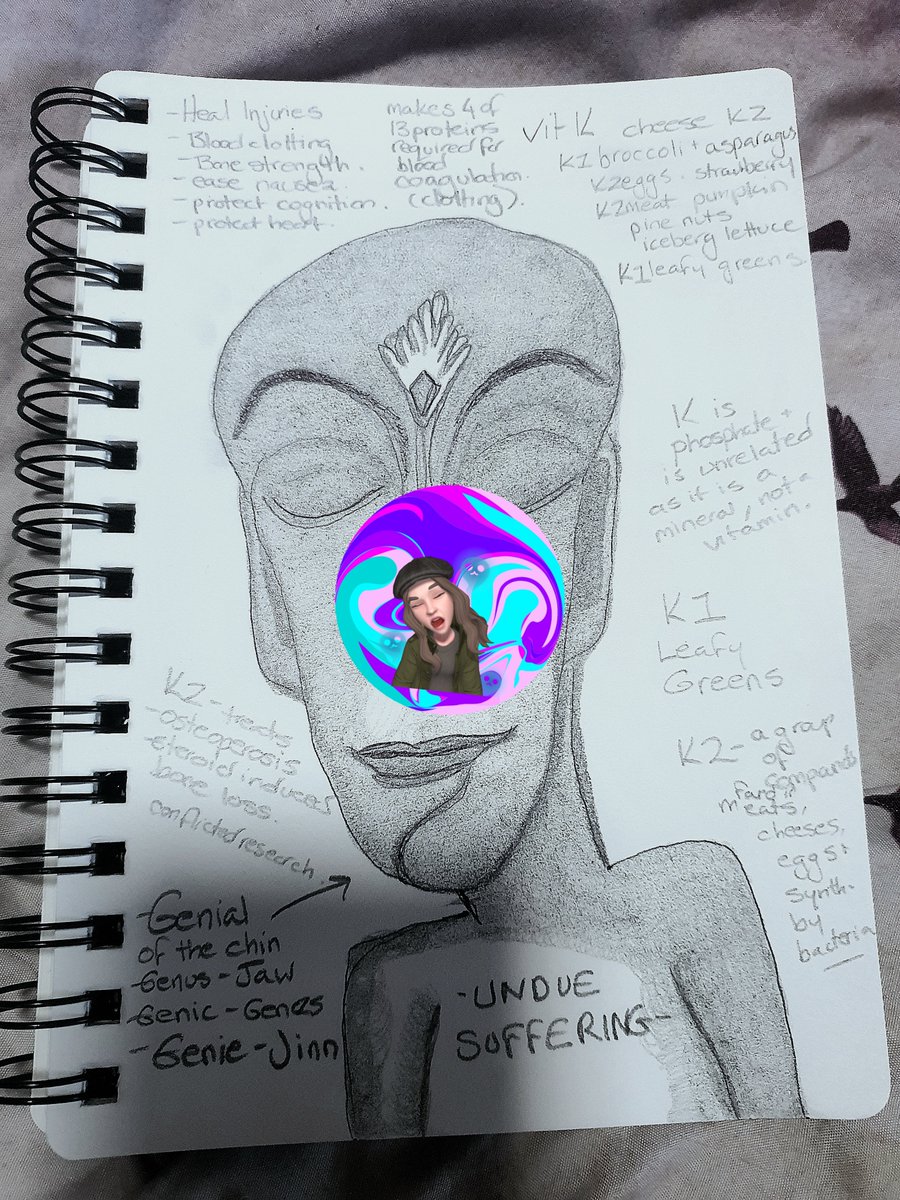 - Heal Injuries
- Blood clotting
- Bone strength.
- ease nausea.
- protect cognition.
- protect heart.
makes 4 of
13 proteins
required for
blood
coagulation.
(clotting).
Vit K cheese K2
K1 broccoli + asparagus
K2 eggs. strawberry
K2 meat pumpkin
pine nuts
iceberg lettuce
K1 leafy greens
K is
phosphate +
is unrelated
as it is a
mineral, not a
vitamin.
K1
Leafy
Greens
K2 - a group
of
compounds
meats,
cheeses,
eggs +
synth.
by
bacteria
K2 - treats
- osteoporosis
- steroid induced
bone loss.
conflicted research.
- Genial
of the chin
- Genus - Jaw
- Genic - Genes
- Genie - Jinn
- UNDUE
SUFFERING -